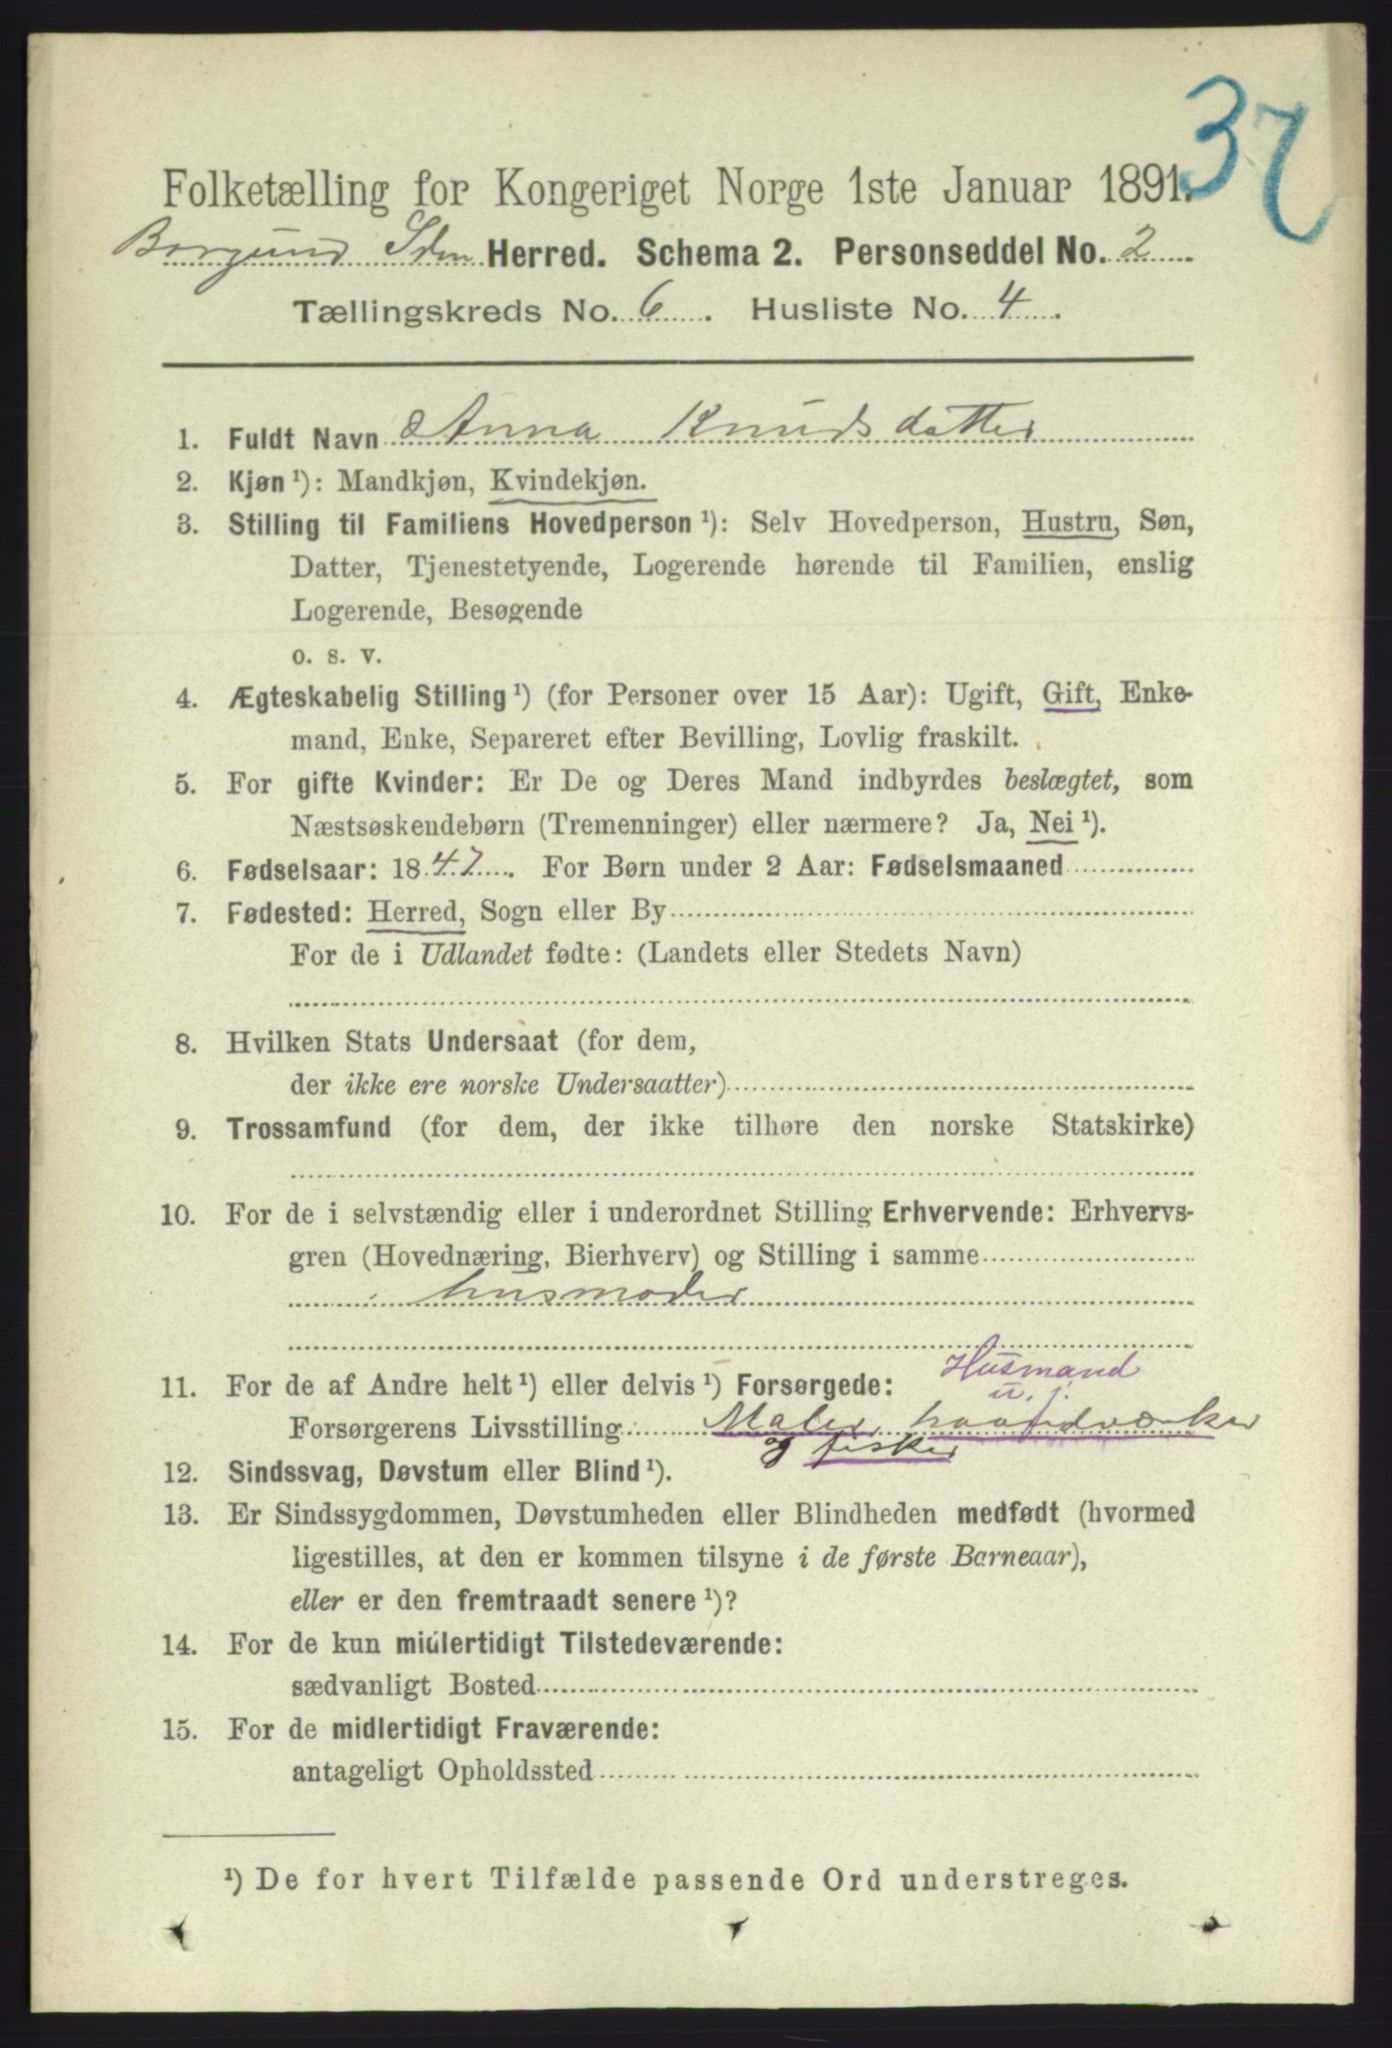 37
Folketælling for Kongeriget Norge 1ste Januar 1891.
Borgund Herred. Schema 2. Personseddel No. 2
Tællingskreds No. 6. Husliste No. 4.
1. Fuldt Navn Anna Knudsdatter
2. Kjøn ¹): Mandkjøn, Kvindekjøn.
3. Stilling til Familiens Hovedperson ¹): Selv Hovedperson, Hustru, Søn,
Datter, Tjenestetyende, Logerende hørende til Familien, enslig
Logerende, Besøgende
o. s. v.
4. Ægteskabelig Stilling ¹) (for Personer over 15 Aar): Ugift, Gift, Enke-
mand, Enke, Separeret efter Bevilling, Lovlig fraskilt.
5. For gifte Kvinder: Er De og Deres Mand indbyrdes beslægtet, som
Næstsøskendebørn (Tremenninger) eller nærmere? Ja, Nei ¹).
6. Fødselsaar: 1847. For Børn under 2 Aar: Fødselsmaaned
7. Fødested: Herred, Sogn eller By
For de i Udlandet fødte: (Landets eller Stedets Navn)
8. Hvilken Stats Undersaat (for dem,
der ikke ere norske Undersaatter)
9. Trossamfund (for dem, der ikke tilhøre den norske Statskirke)
10. For de i selvstændig eller i underordnet Stilling Erhvervende: Erhvervs-
gren (Hovednæring, Bierhverv) og Stilling i samme
husmoder
Husmand
11. For de af Andre helt ¹) eller delvis ¹) Forsørgede: u. j.
Forsørgerens Livsstilling Maler, haandværker
og fisker
12. Sindssvag, Døvstum eller Blind ¹).
13. Er Sindssygdommen, Døvstumheden eller Blindheden medfødt (hvormed
ligestilles, at den er kommen tilsyne i de første Barneaar),
eller er den fremtraadt senere ¹)?
14. For de kun midlertidigt Tilstedeværende:
sædvanligt Bosted
15. For de midlertidigt Fraværende:
antageligt Opholdssted
¹) De for hvert Tilfælde passende Ord understreges.